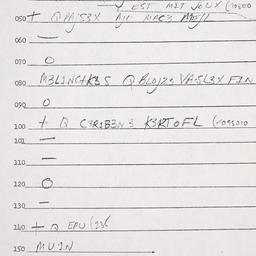 EST MIT JOUX (10300
050 + QPAJS3X AJC MAC3 MEJL
060 —
070 O
080 M3L1NCHK3S QBLOJ23 VASL3X FIN
090 O
100 + Q C3R1B3N3 K3RTOFL (095010
101 —
110 —
120 O
130 —
140 + Q EPU (236
150 MUIN